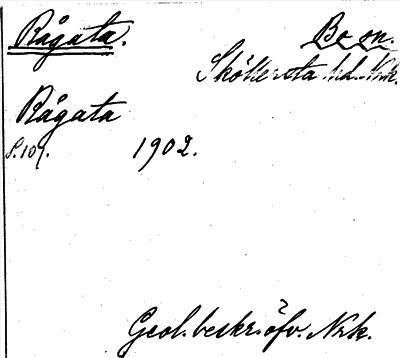 Rågata. Bo sn.
Sköllersta hd. Nrk.
Rågata
S. 107. 1902.
Geol. beskr. öfv. Nrk.